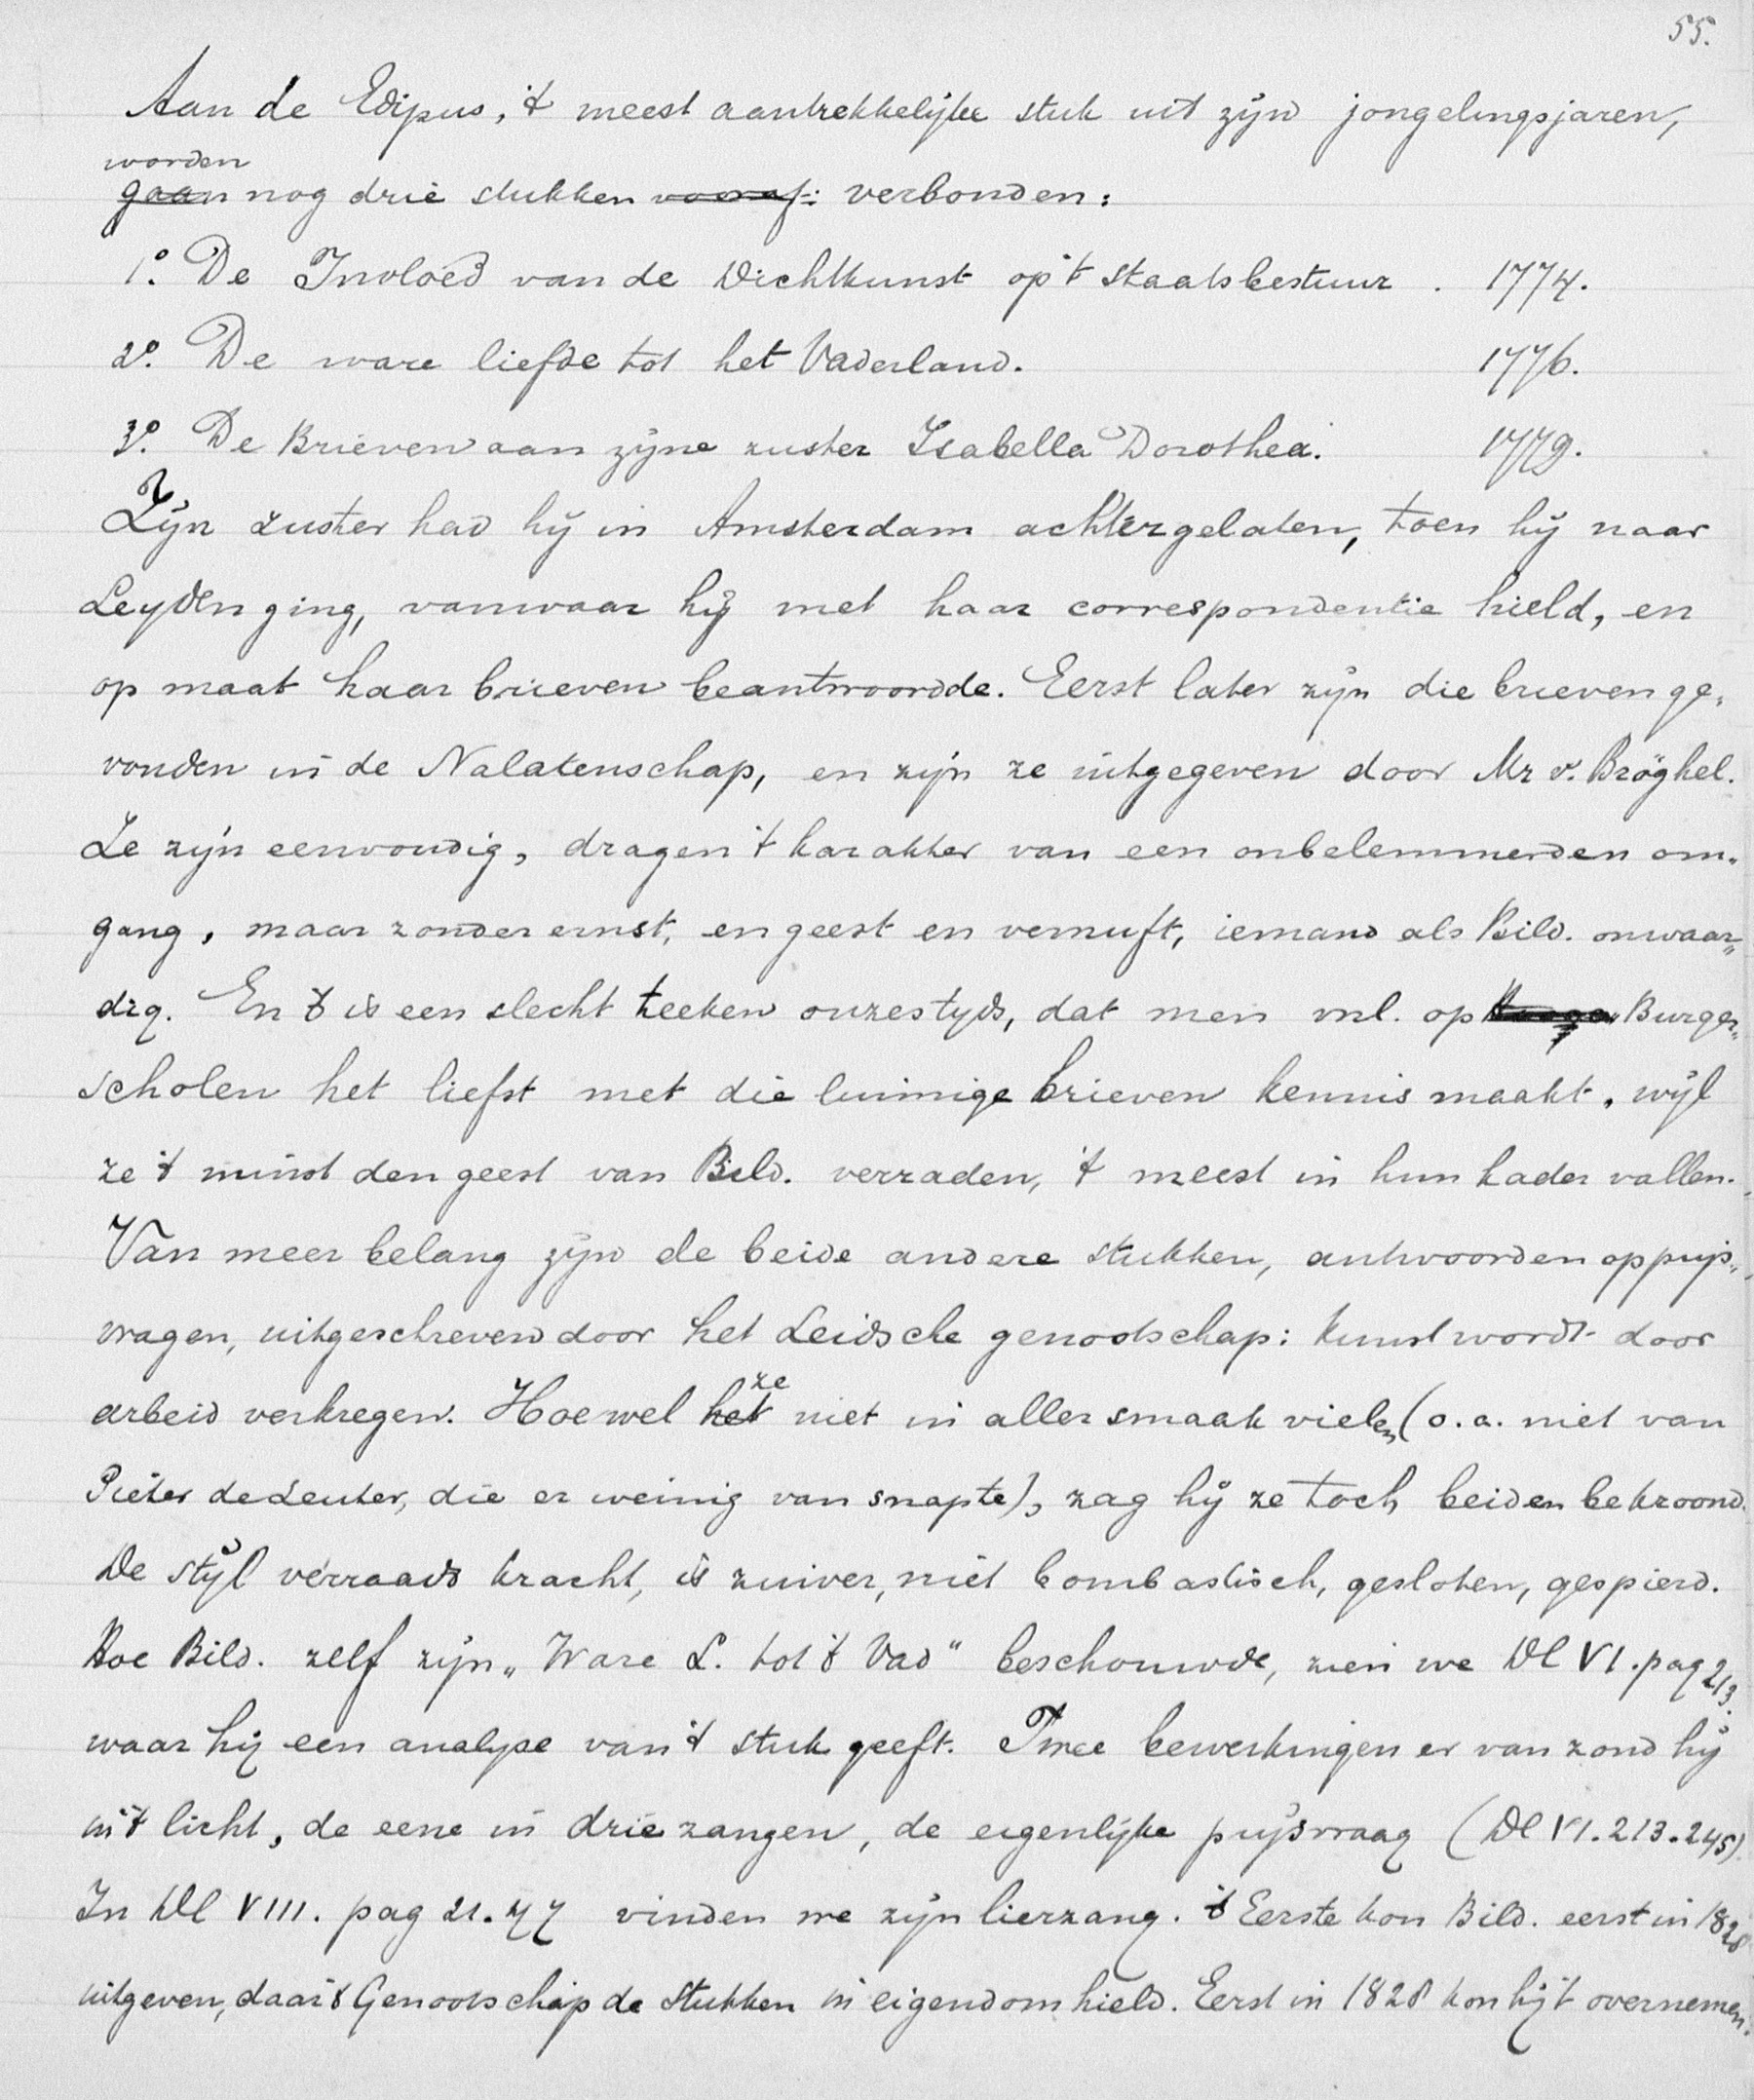 55.
Aan de Edipus, 't meest aantrekkelijke stuk uit zijn jongelingsjaren,
worden
gaan nog drie stukken vooraf: verbonden:
1o. De Invloed van de Dichtkunst op 't Staatsbestuur. 1774.
2o. De ware liefde tot het Vaderland. 1776.
3o. De Brieven aan zijne zuster Isabella Dorothea. 1779.
Zijn zuster had hij in Amsterdam achtergelaten, toen hij naar
Leyden ging, vanwaar hij met haar correspondentie hield, en
op maat haar brieven beantwoordde. Eerst later zijn die brieven ge„
vonden in de Nalatenschap, en zijn ze uitgegeven door Mr v. Bröghel.
Ze zijn eenvoudig, dragen 't karakter van een onbelemmerden om„
gang, maar zonder ernst, en geest en vernuft, iemand als Bild. onwaar„
dig. En 't is een slecht teeken onzes tijds, dat men vnl. op Burger„
scholen het liefst met die luimige brieven kennis maakt, wijl
ze 't minst den geest van Bild. verraden, 't meest in hun kader vallen.
Van meer belang zijn de beide andere stukken, antwoorden op prijs„
vragen, uitgeschreven door het Leidsche genootschap: kunst wordt door
ze
arbeid verkregen. Hoewel het niet in aller smaak vielen (o.a. niet van
Pieter de Leuter, die er weinig van snapte), zag hij ze toch beiden bekroond.
De stijl verraadt kracht, is zuiver, niet bombastisch, gesloten, gespierd.
Hoe Bild. zelf zijn „Ware L. tot 't Vad" beschouwde, zien we Dl VI. pag 213.
waar hij een analyse van 't stuk geeft. Twee bewerkingen er van zond hij
in 't licht, de eene in drie zangen, de eigenlijke prijsvraag (Dl VI. 213-245).
In Dl VIII. pag 21-47 vinden we zijn lierzang. 't Eerste kon Bild. eerst in 1828
uitgeven, daar 't Genootschap de stukken in eigendom hield. Eerst in 1828 kon hij 't overnemen.